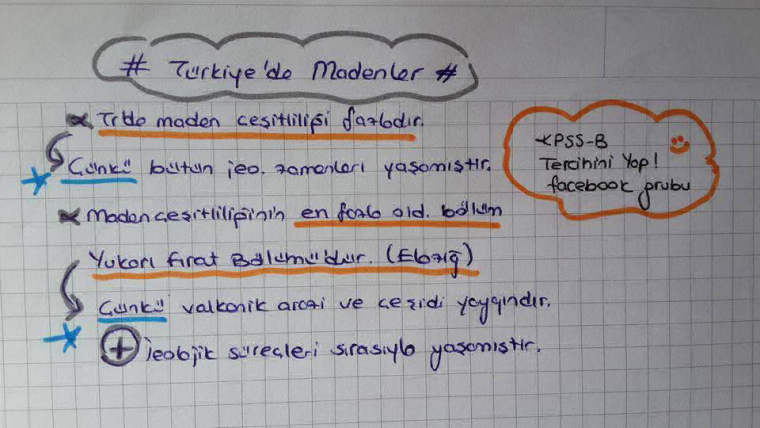 # Türkiye'de Madenler #
Trde maden çeşitliliği fazladır.
Çünkü bütün jeo. zamanları yaşamıştır.
KPSS-B
Tercihini Yap!
facebook grubu
Maden çeşitliliğinin en fazla old. bölüm
Yukarı Fırat Bölümü'dür. (Elazığ)
Çünkü valkanik arazi ve çeşidi yaygındır.
+ jeolojik süreçleri sırasıyla yaşamıştır.